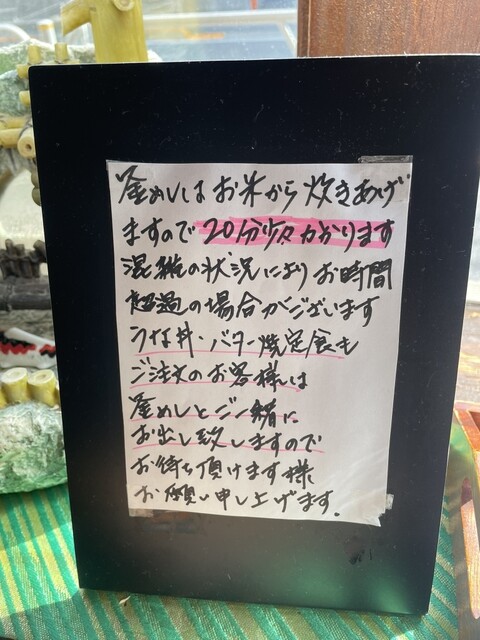 釜めしはお米から炊きあげ
ますので20分少々かかります
混雑の状況によりお時間
超過の場合がございます
うな丼・バター焼定食も
ご注文のお客様は
釜めしとご一緒に
お出し致しますので
お待ち頂けます様
お願い申し上げます.